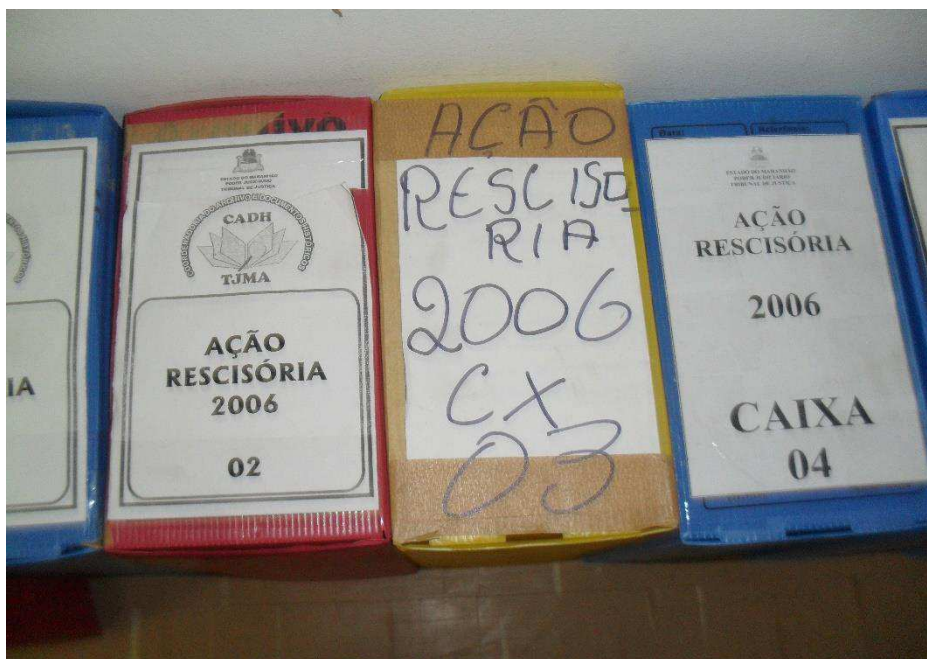 RIA
ESTADO DO MARANHÃO
PODER JUDICIÁRIO
TRIBUNAL DE JUSTIÇA
COORDENADORIA DO ARQUIVO E DOCUMENTOS HISTÓRICOS
CADH
TJMA
AÇÃO
RESCISÓRIA
2006
02
AÇÃO
RESCISO
RIA
2006
CX
03
Data:
Referência:
ESTADO DO MARANHÃO
PODER JUDICIÁRIO
TRIBUNAL DE JUSTIÇA
AÇÃO
RESCISÓRIA
2006
CAIXA
04